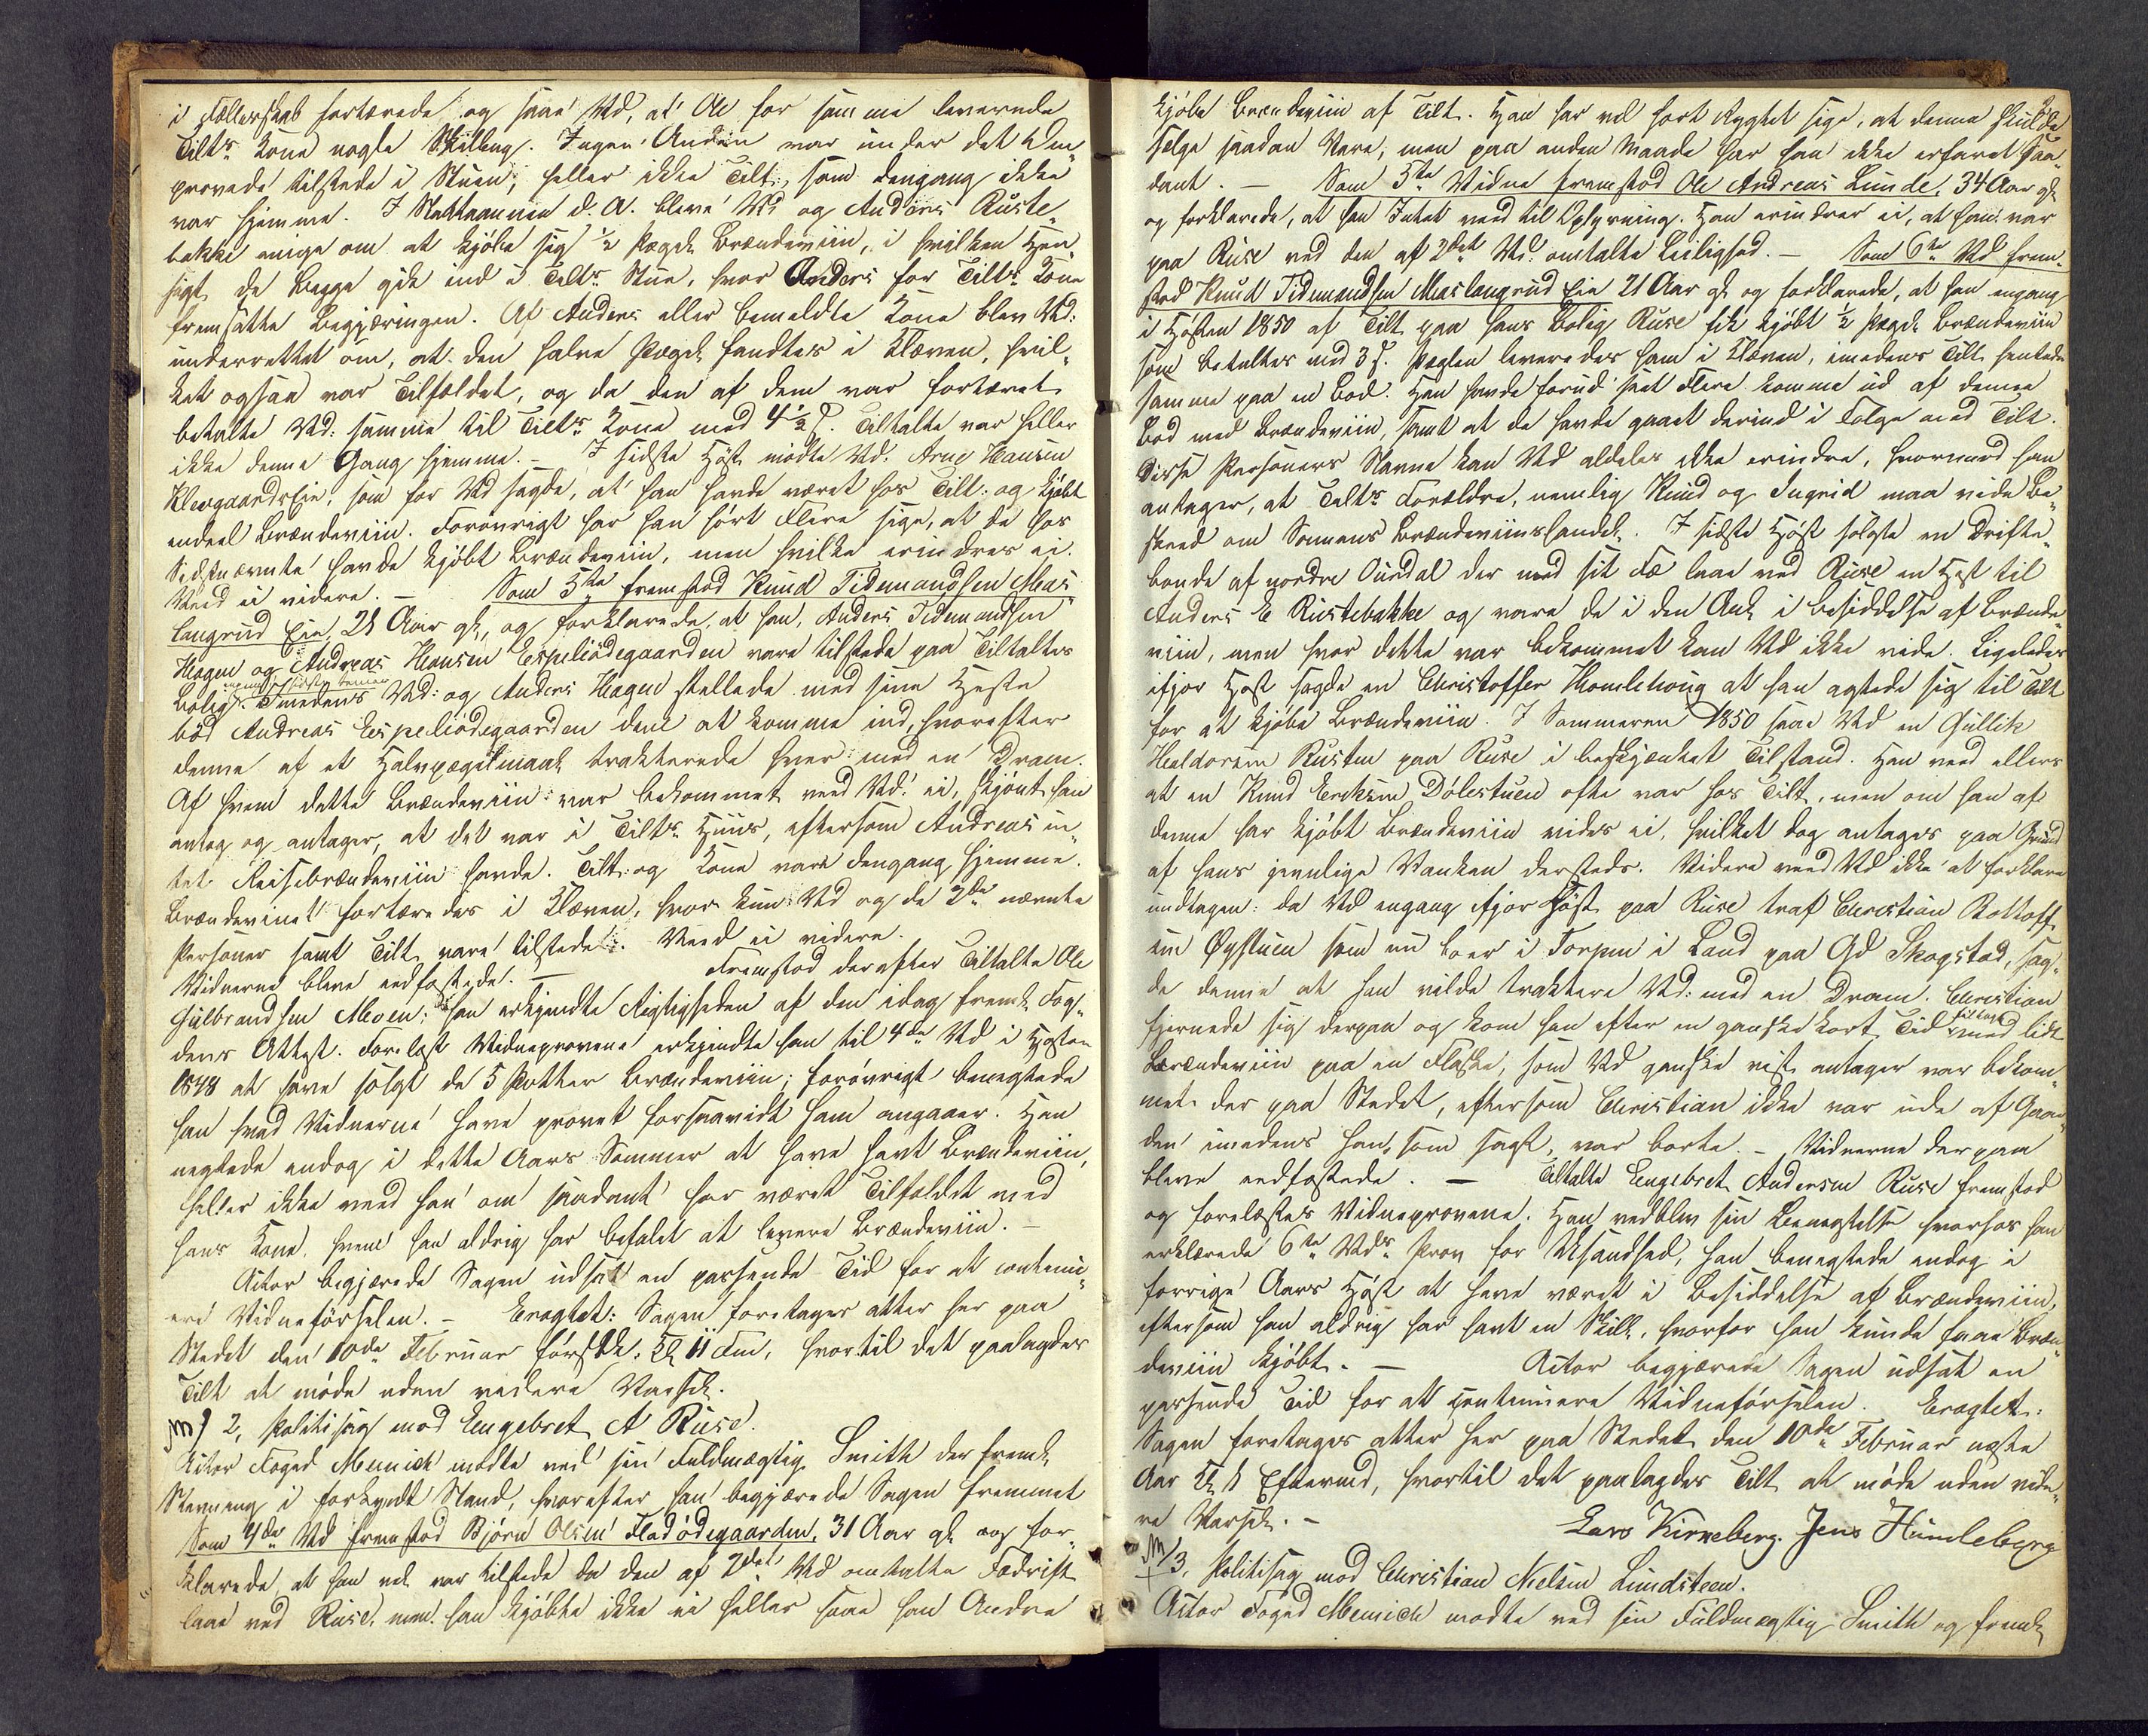 i Fællesskab fortærede og saae Vd, at Ole for samme leverede
Tilts Kone nogle Skilling. Ingen Anden var under det Om„
provede tilstede i Stuen; heller ikke Tilt:, som dengang ikke
var hjemme. I d. A. bleve Vd og Anders Ruste„
bakke enige om at kjöbe sig ½ Pægel Brændeviin, i hvilken Hen„
sigt de begge gik ind i Tilts Stue, hvor Anders for Tilts Kone
fremsatte Begjæringen. Af Anders eller bemeldte Kone blev Vd:
underrettet om, at den halve Pægel fandtes i Kleven, hvil„
ket ogsaa var Tilfældet, og da den af dem var fortæret
betalte Vd: samme til Tilts Kone med 4½ s. Tiltalte var heller
ikke denne Gang hjemme. – I sidste Höst mödte Vd. Arne Hansen
KlevgaardsEie, som for Vd sagde, at han havde været hos Tilt: og kjöbt
endeel Brændeviin. Forøvrigt har han hört Flere sige, at de hos
Sidstnævnte havde kjöbt Brændeviin, men hvilke erindres ei.
Veed ei videre. – Som 5te fremstod Knud Tidemandsen Mas„
langrud Eie, 21 Aar gl, og forklarede, at han, Anders Tidemandsen
Hagen og Andreas Hansen Espeliödegaarden vare tilstede paa Tiltaltes
Bolig. Imedens Vd: og Anders Hagen stellede med sine Heste
böd Andreas Espeliödegaarden dem at komme ind, hvorefter
denne af et Halvpægelmaal trakterede hver med en Dram.
Af hvem dette Brændeviin var bekommet veed Vd: ei, skjönt han
antog og antager, at det var i Tilts Huus, eftersom Andreas in„
tet Reisebrændeviin havde. Tilt: og Kone vare dengang hjemme.
Brændevinet fortæredes i Kleven, hvor kun Vd og de 2de nævnte
Personer samt Tilt vare tilstede. Veed ei videre.
Vidnerne bleve edfæstede. – Fremstod derefter Tiltalte Ole
Gulbrandsen Moen; han erkjendte Rigtigheden af den idag freml. Fog„
dens Attest. Forelæst Vidneprovene erkjendte han til 4de Vd i Hösten
1848 at have solgt de 5 Potter Brændeviin; forövrigt benegtede
han hvad Vidnerne have provet forsaavidt ham angaaer. Han
negtede endog i dette Aars Sommer at have havt Brændeviin,
heller ikke veed han om saadant har været Tilfældet med
hans Kone, hvem han aldrig har befalet at levere Brændeviin. –
Actor begjærede Sagen udsat en passende Tid for at continu„
ere Vidneförselen. – Eragtet: Sagen foretages atter her paa
Stedet den 10de Februar förstk. Kl 11 Fm, hvortil det paalagdes
Tilt at möde uden videre Varsel.
M 2, Politisag mod Engebret A Ruse.
Actor Foged Meinich mødte ved sin Fuldmægtig Smith der freml.
Stevning i forkyndt Stand, hvorefter han begjærede Sagen fremmet
Som 4de Vd fremstod Björn Olsen Fladödegaarden, 31 Aar gl og for„
klarede at han vel var tilstede da den af 2det Vd omtalte Fædrift
laae ved Ruse, men han kjöbte ikke ei heller saae han Andre
kjöbe Brændeviin af Tilt. Han har vel hört Rygtet sige, at denne skulde
sælge saadan Vare, men paa anden Maade har han ikke erfaret saa„
dant. – Som 5te Vidne fremstod Ole Andreas Lunde, 34 Aar gl
og forklarede, at han Intet veed til Oplysning. Han erindrer ei, at han var
paa Ruse ved den af 2det Vd. omtalte Leilighed. – Som 6te Vd frem„
stod Knud Tidemandsen Maslangrud Eie 21 Aar gl og forklarede, at han engang
i Hösten 1850 af Tilt paa hans Bolig Ruse fik kjöbt ½ Pægel Brændeviin
som betaltes med 3 s. Pæglen leveredes ham i Kleven, imedens Tilt hentede
samme paa en Bod. Han havde forud seet Flere komme ud af denne
Bod med Brændeviin, samt at de havde gaaet derind i Følge med Tilt.
Disse Personers Navne kan Vd aldeles ikke erindre, hvormed han
antager, at Tilts Forældre, nemlig Knud og Ingrid maa vide Be„
skeed om Sønnens Brændeviinshandel. I sidste Höst solgte en Drifte„
bonde af nordre Ourdal der med sit Fæ laae ved Ruse en Hest til
Anders E Rustebakke og vare de i den Anl i Besiddelse af Brænde„
viin, men hvor dette var bekommet kan Vd ikke vide. Ligeledes
ifjor Höst sagde en Christoffer Homlehoug at han agtede sig til Tilt
for at kjöbe Brændeviin. I Sommeren 1850 saae Vd en Gullik
Haldorsen Rusten paa Ruse i beskjænket Tilstand. Han veed ellers
at en Knud Eriksen Dölestuen ofte var hos Tilt, men om han af
denne har kjöbt Brændeviin vides ei, hvilket dog antages paa Grund
af hans jevnlige Vanken dersteds. Videre veed Vd ikke at forklare
undtagen: da Vd engang ifjor Höst paa Ruse traf Christian Bottolf„
sen Øystuen som nu boer i Torpen i Land paa Gd Skogstad, sag„
de denne at han vilde traktere Vd: med en Dram. Christian
fjernede sig derpaa og kom han efter en ganske kort Tid tilbage med lidt
Brændeviin paa en Flaske, som Vd ganske vist antager var bekom„
met der paa Stedet, eftersom Christian ikke var ude af Gaar„
den imedens han, som sagt, var borte. – Vidnerne derpaa
bleve edfæstede. – Tiltalte Engebret Andersen Ruse fremstod
og forelæstes Vidneprovene. Han vedblev sin Benegtelse hvorhos han
erklærede 6te Vds Prov for Usandhed, han benegtede endog i
forrige Aars Höst at have været i Besiddelse af Brændeviin,
eftersom han aldrig har havt en Skill. hvorfor han kunde faae Bræn„
deviin kjöbt. – Actor begjærede Sagen udsat en
passende Tid for at continuere Vidneförselen. Eragtet:
Sagen foretages atter her paa Stedet den 10de Februar næste
Aar Kl Efterm, hvortil det paalagdes Tilt at möde uden vide„
re Varsel. –
Lars Kirkeberg. Jens Humleberg
M 3, Politisag mod Christian Nielsen Lundsteen.
Actor Foged Meinich mødte ved sin Fuldmægtig Smith og freml.